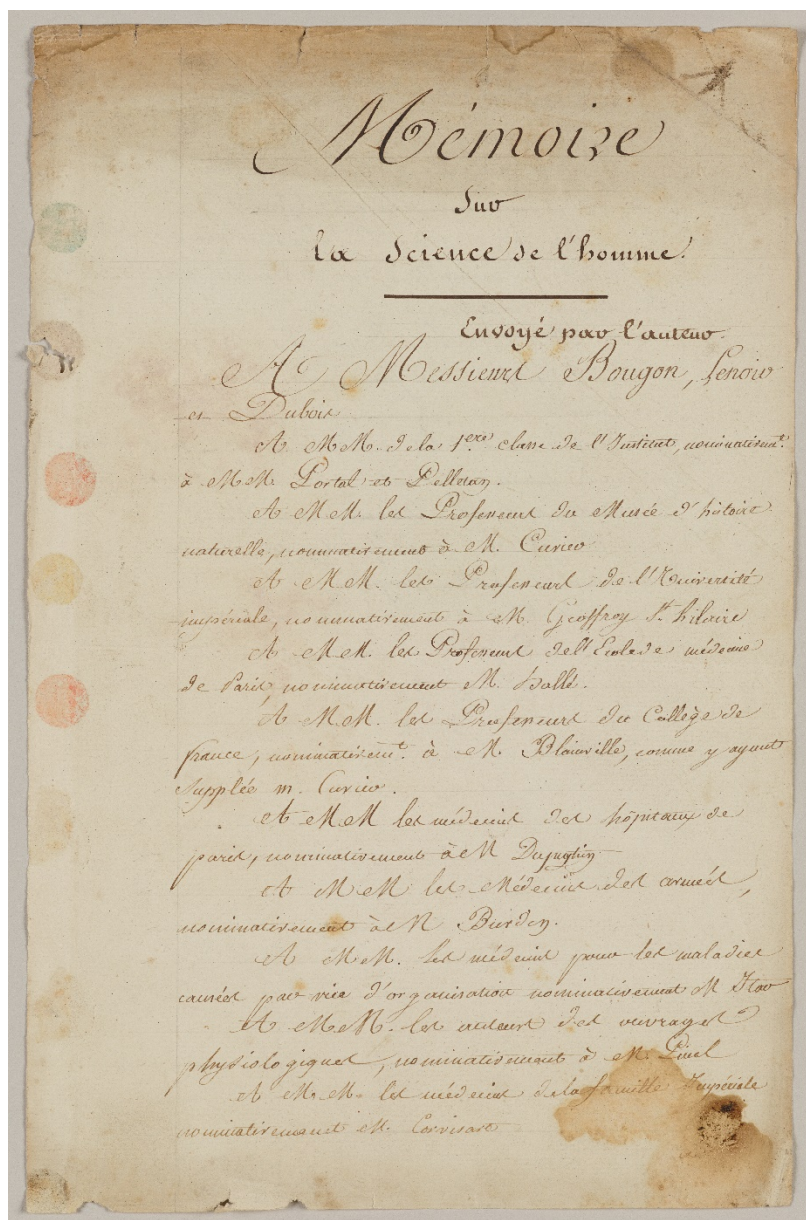 Mémoire
Sur
la Science de l'homme.
Envoyé par l'auteur.
A Messieurs Bougon, Lenoir
et Dubois
A MM. de la 1ere classe de l'Institut, nominativemt.
à MM. Portal et Pelletan.
A MM. les Professeurs du Musée d'histoire
naturelle, nominativement à M. Cuvier
A MM. les Professeurs de l'Université
impériale, nominativement à M. Geoffroy St. hilaire
A MM. les Professeurs de l'Ecole de médecine
de Paris, nominativement M. hallé.
A MM. les Professeurs du Collège de
france, nominativemt. à M. Blainville, comme y ayant
Supplée m. Cuvier.
A MM les médecins des hôpitaux de
paris, nominativement à M
A MM les Médecins des armées,
nominativement à M Burdin.
A MM. les médecins pour les maladies
causées par vice d'organisation nominativement M Itar
A MM. les auteurs des ouvrages
physiologiques, nominativement à M. Pinel
A MM. les médecins de la famille Impériale
nominativement M. Corvisart